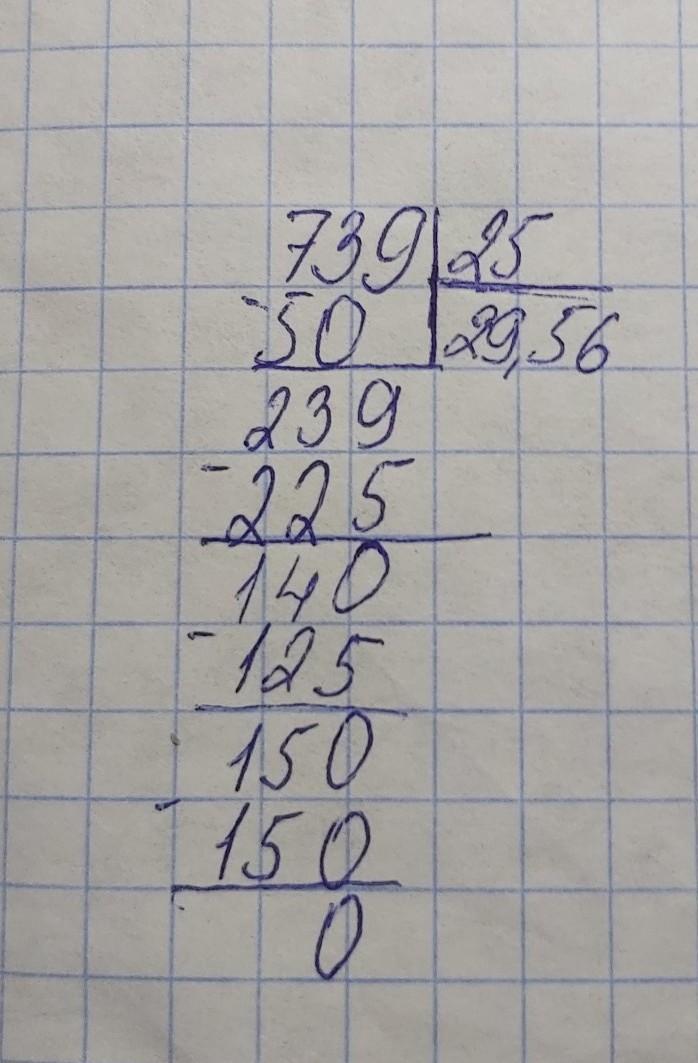 739 25
-50 29,56
239
-225
140
-125
150
-150
0